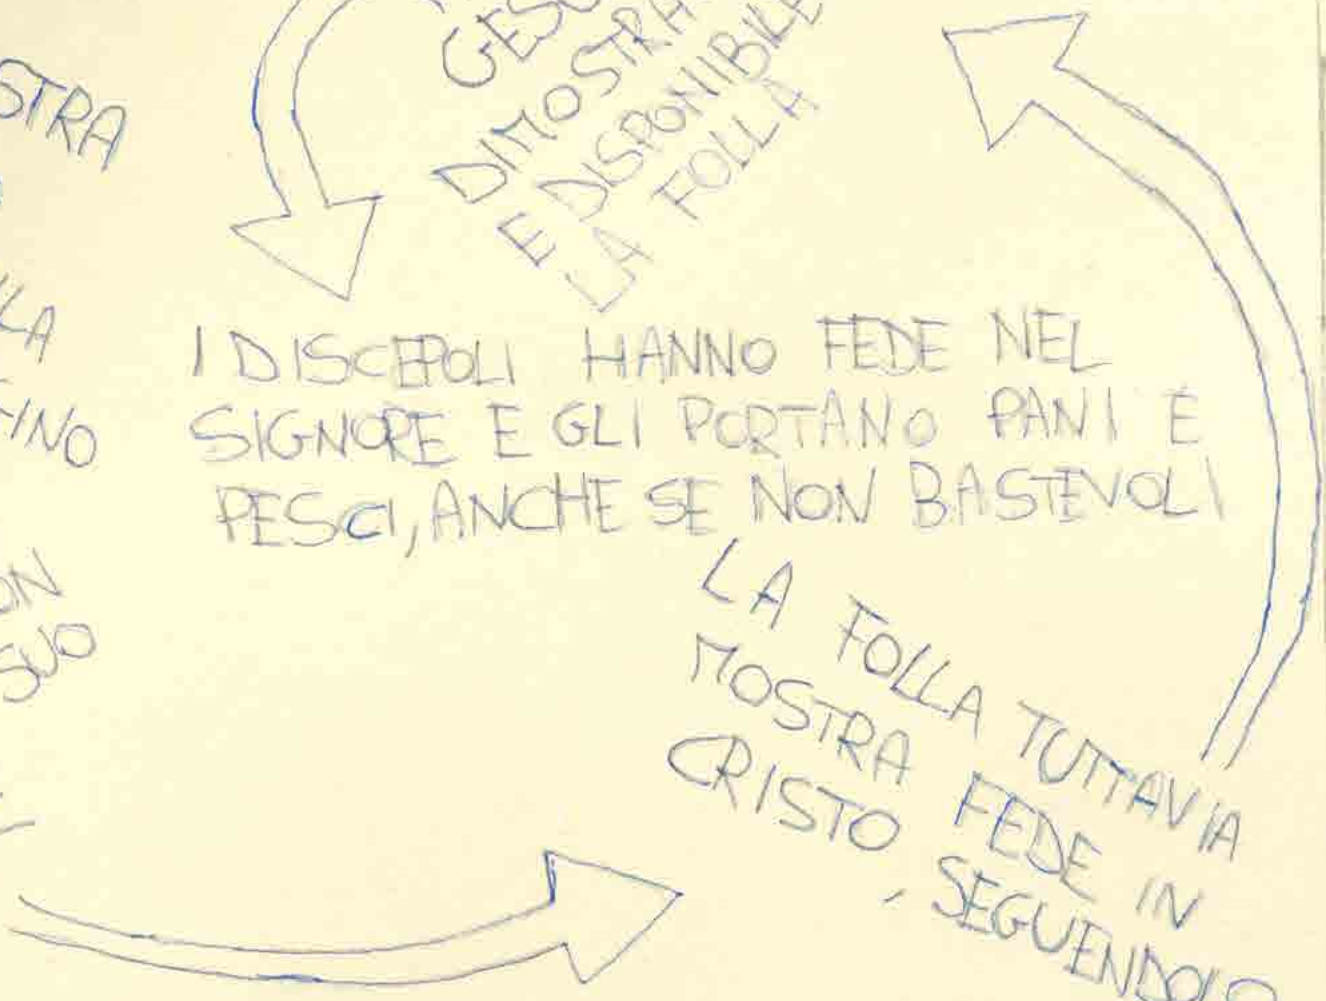 STRA
LA
SUO
GESÙ
DIMOSTRA
E DISPONIBILE
LA FOLLA
I DISCEPOLI HANNO FEDE NEL
SIGNORE E GLI PORTANO PANI E
PESCI, ANCHE SE NON BASTEVOLI
LA FOLLA TUTTAVIA
MOSTRA FEDE IN
CRISTO, SEGUENDOLO